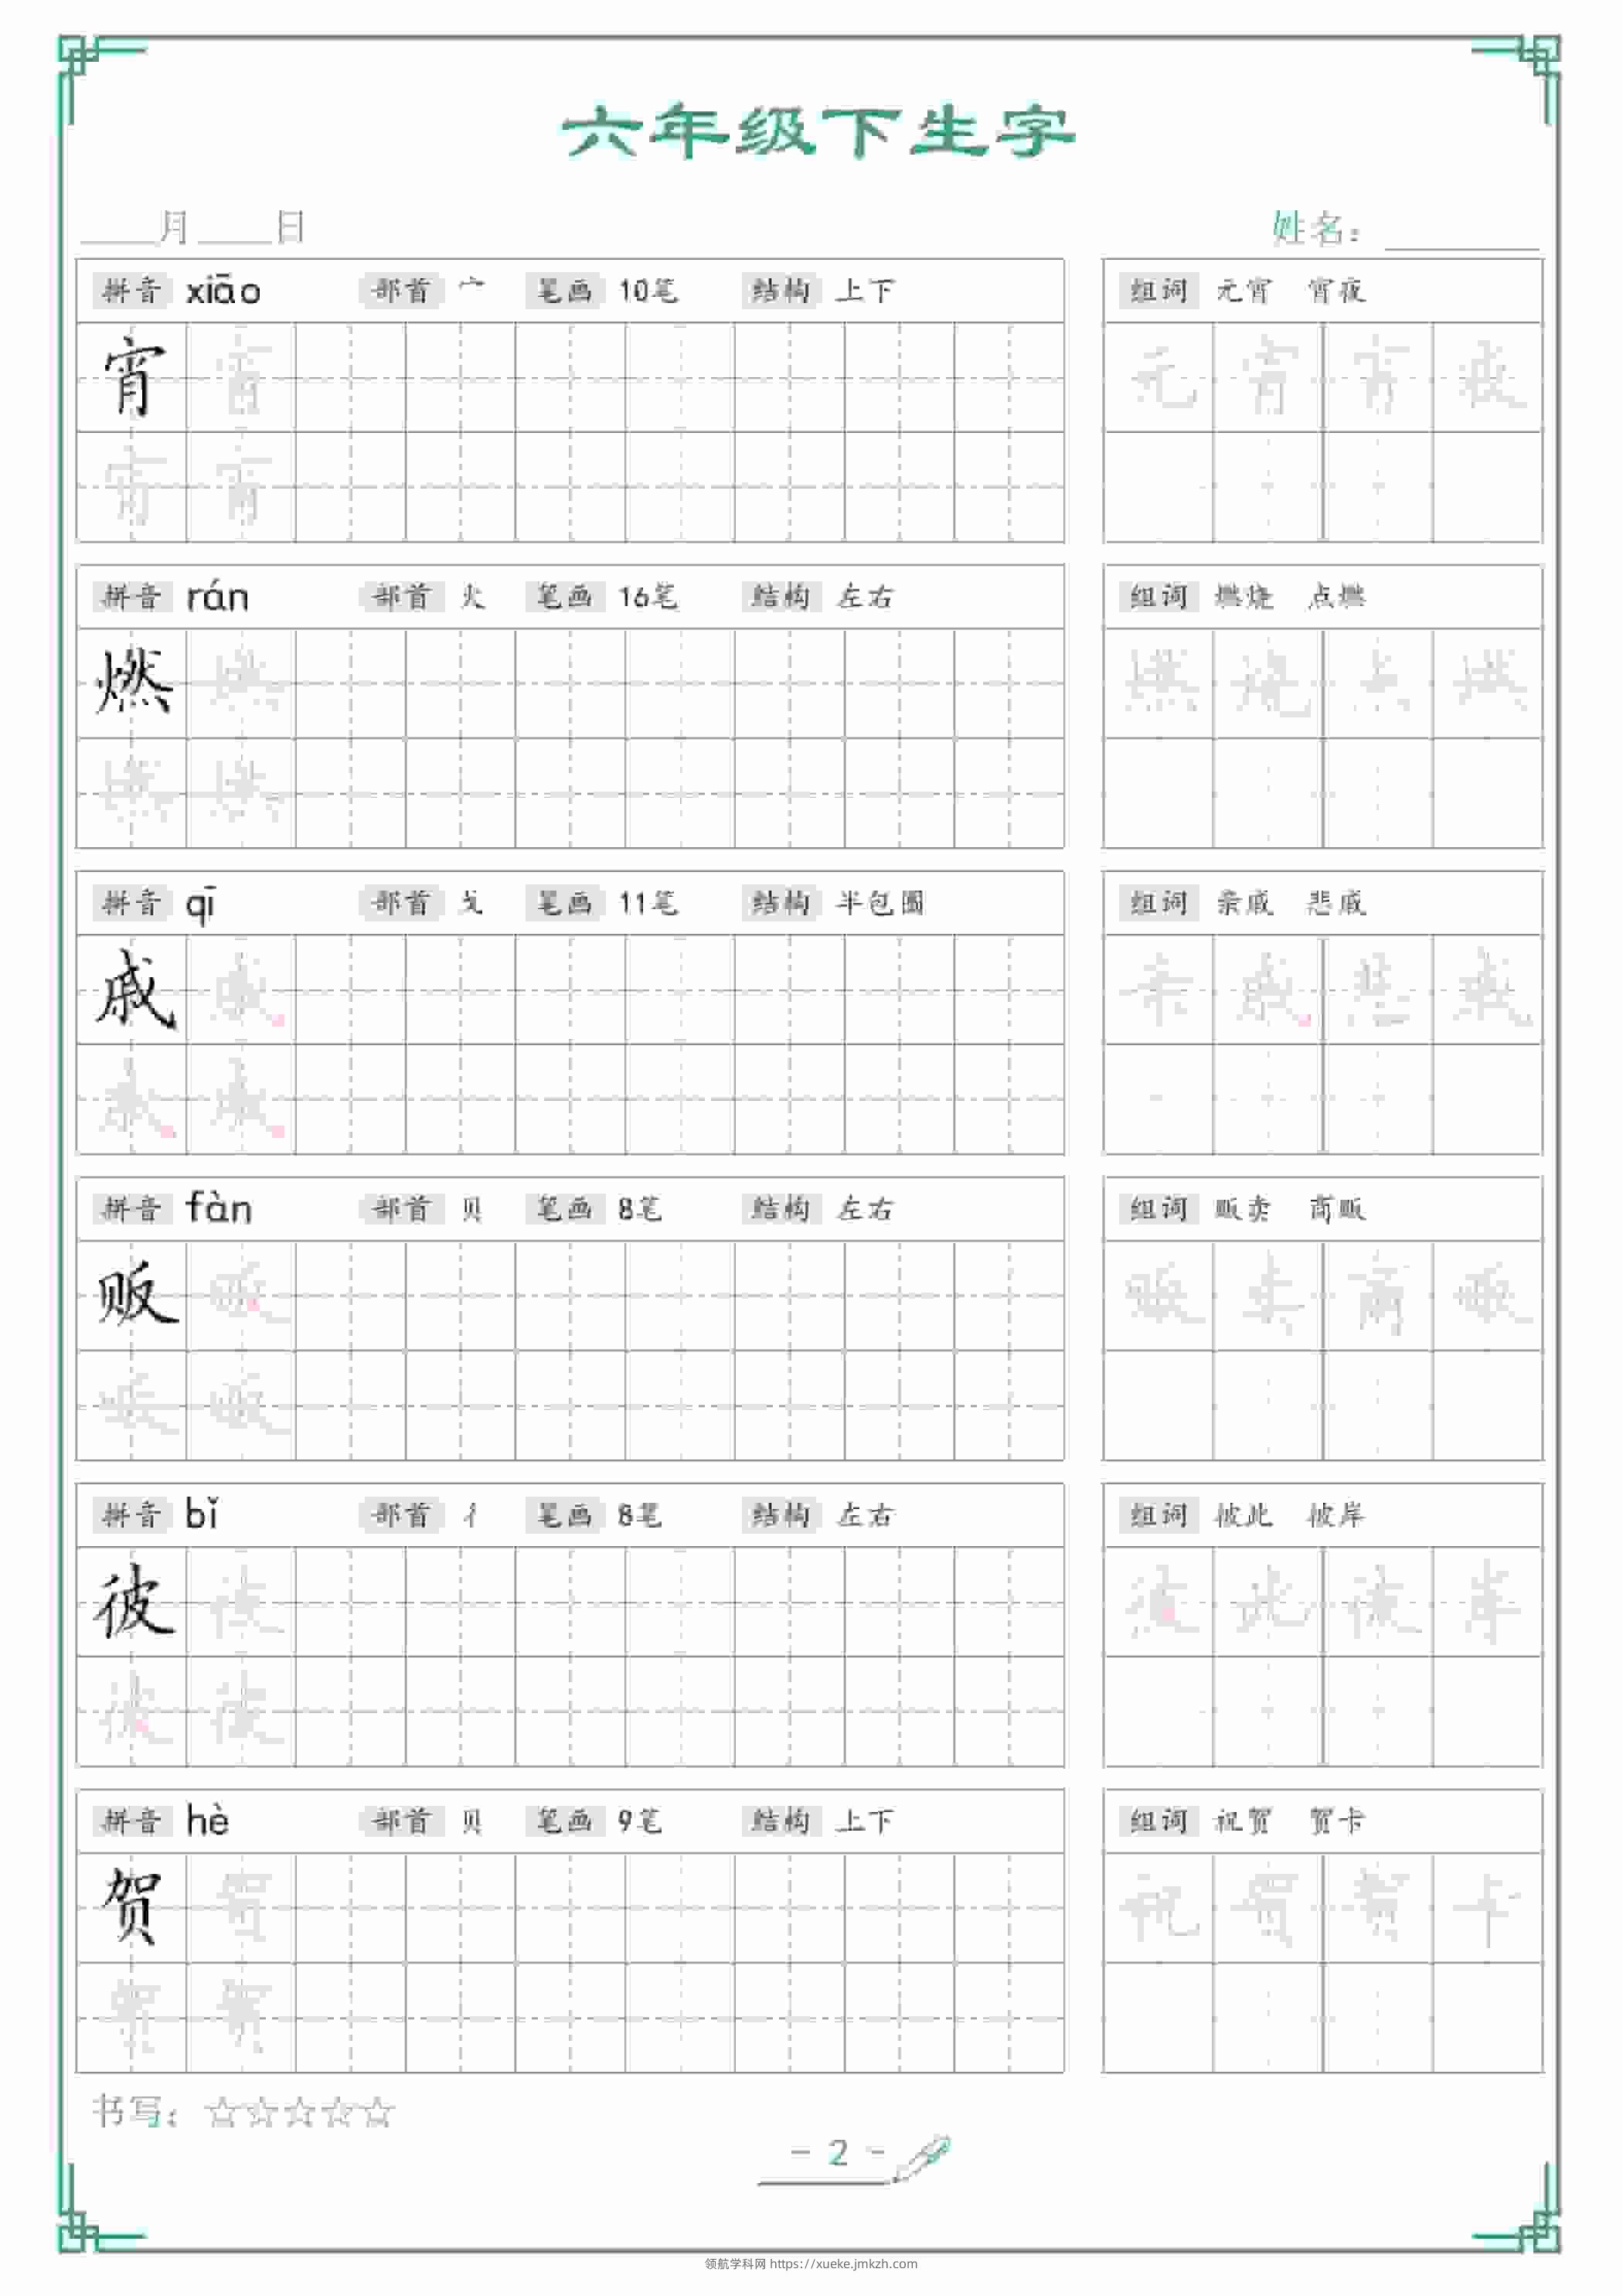 六年级下生字
____月____日 姓名：________
拼音 xiāo 部首 宀 笔画 10笔 结构 上下 组词 元宵 宵夜
宵 宵 元 宵 宵 夜
宵 宵
拼音 rán 部首 火 笔画 16笔 结构 左右 组词 燃烧 点燃
燃 燃 燃 烧 点 燃
燃 燃
拼音 qī 部首 戈 笔画 11笔 结构 半包围 组词 亲戚 悲戚
戚 戚 亲 戚 悲 戚
戚 戚
拼音 fàn 部首 贝 笔画 8笔 结构 左右 组词 贩卖 商贩
贩 贩 贩 卖 商 贩
贩 贩
拼音 bǐ 部首 彳 笔画 8笔 结构 左右 组词 彼此 彼岸
彼 彼 彼 此 彼 岸
彼 彼
拼音 hè 部首 贝 笔画 9笔 结构 上下 组词 祝贺 贺卡
贺 贺 祝 贺 贺 卡
贺 贺
书写：☆☆☆☆☆
- 2 -
领航学科网 https://xueke.jmkzh.com